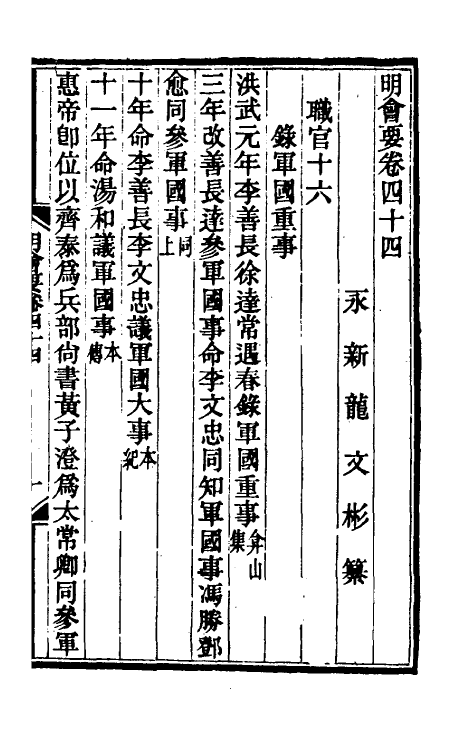 明會要卷四十四
永新龍文彬纂
職官十六
錄軍國重事
洪武元年李善長徐達常遇春錄軍國重事弇山集
三年改善長達參軍國事命李文忠同知軍國事馮勝鄧
愈同參軍國事同上
十年命李善長李文忠議軍國大事本紀
十一年命湯和議軍國事本傳
惠帝卽位以齊泰爲兵部尙書黃子澄爲太常卿同參軍
明會要卷四十四 一